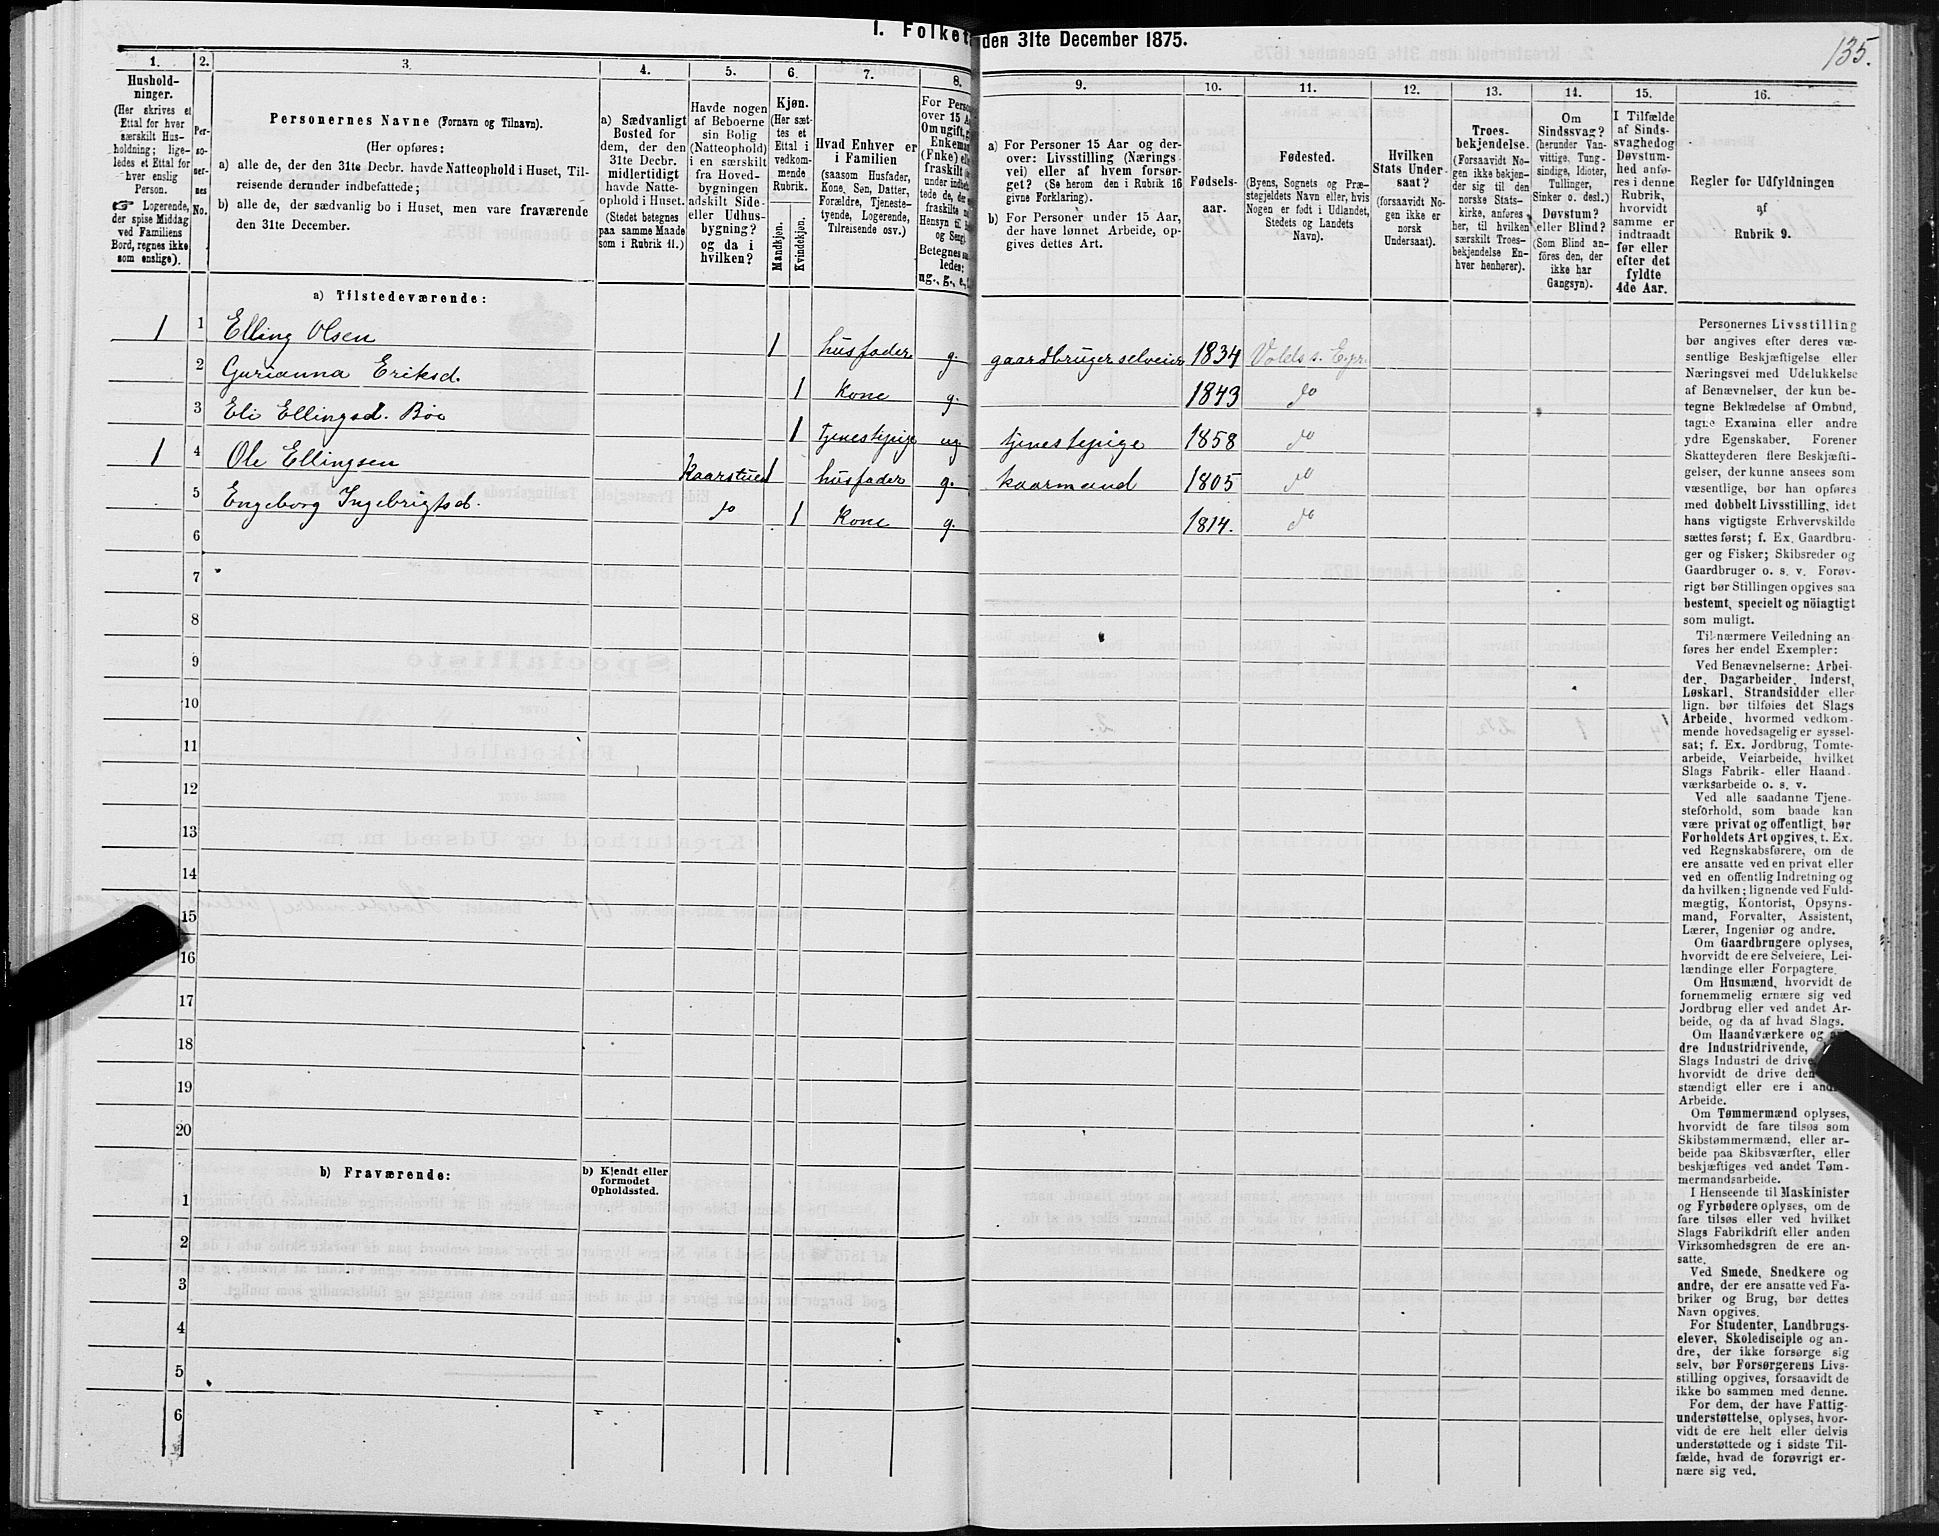 1. Folket
den 31te December 1875.
135.
1.
2.
3.
4.
5.
6.
7.
8.
9.
10.
11.
12.
13.
14.
15.
16.
Hushold-
ninger.
(Her skrives et
Ettal for hver
særskilt Hus-
holdning; lige-
ledes et Ettal for
hver enslig
Person.
☞ Logerende,
der spise Middag
ved Familiens
Bord, regnes ikke
som enslige).
Per-
so-
ner-
nes
No.
Personernes Navne (Fornavn og Tilnavn).
(Her opføres:
a) alle de, der den 31te Decbr. havde Natteophold i Huset, Til-
reisende derunder indbefattede;
b) alle de, der sædvanlig bo i Huset, men vare fraværende
den 31te December.
a) Sædvanligt
Bosted for
dem, der den
31te Decbr.
midlertidigt
havde Natte-
ophold i Huset.
(Stedet betegnes
paa samme Maade
som i Rubrik 11.)
Havde nogen
af Beboerne
sin Bolig
(Natteophold)
i en særskilt
fra Hoved-
bygningen
adskilt Side-
eller Udhus-
bygning?
og da i
hvilken?
Kjøn.
(Her sæt-
tes et
Ettal i
vedkom-
mende
Rubrik.
Mandkjøn.
Kvindekjøn.
Hvad Enhver er
i Familien
(saasom Husfader,
Kone, Søn, Datter,
Forældre, Tjeneste-
tyende, Logerende,
Tilreisende osv.)
For Person
over 15 Aa
Om ugift, g
Enkeman
(Enke) elle
fraskilt (s
under indbe
tede de, der e
fraskilte n
Hensyn til B
og Seng)
Betegnes saa
ledes:
ug., g., e.,
a) For Personer 15 Aar og der-
over: Livsstilling (Nærings-
vei) eller af hvem forsør-
get? (Se herom den i Rubrik 16
givne Forklaring).
b) For Personer under 15 Aar,
der have lønnet Arbeide, op-
gives dettes Art.
Fødsels-
aar.
Fødested.
(Byens, Sognets og Præ-
stegjeldets Navn eller, hvis
Nogen er født i Udlandet,
Stedets og Landets
Navn).
Hvilken
Stats Under-
saat?
(forsaavidt No-
gen ikke er
norsk
Undersaat).
Troes-
bekjendelse.
(Forsaavidt No-
gen ikke bekjen-
der sig til den
norske Stats-
kirke, anføres
her, til hvilken
særskilt Troes-
bekjendelse En-
hver henhører).
Om
Sindssvag?
(herunder Van-
vittige, Tung-
sindige, Idioter,
Tullinger,
Sinker o. desl.)
Døvstum?
eller Blind?
(Som Blind an-
føres den, der
ikke har
Gangsyn).
I Tilfælde
af Sinds-
svaghed og
Døvstum-
hed anfø-
res i denne
Rubrik,
hvorvidt
samme er
indtraadt
før eller
efter det
fyldte
4de Aar.
Regler for Udfyldningen
af
Rubrik 9.
a) Tilstedeværende:
1 1 Elling Olsen 1 husfader g. gaardbruger selveier 1834 Volds s. E.pr.
2 Gurianna Eriksd. 1 Kone g. 1843 do
3 Eli Ellingsd. Böe 1 tjenestepige ug. tjenestepige 1858 do
1 4 Ole Ellingsen Kaarstuen 1 husfader g. kaarmand 1805 do
5 Engeborg Ingebrigtsd. do 1 Kone g. 1814. do
6
7
8
9
10
11
12
13
14
15
16
17
18
19
20
b) Fraværende:
b) Kjendt eller
formodet
Opholdssted.
1
2
3
4
5
6
Personernes Livsstilling
bør angives efter deres væ-
sentlige Beskjæftigelse eller
Næringsvei med Udelukkelse
af Benævnelser, der kun be-
tegne Beklædelse af Ombud,
tagne Examina eller andre
ydre Egenskaber. Forener
Skatteyderen flere Beskjæfti-
gelser, der kunne ansees som
væsentlige, bør han opføres
med dobbelt Livsstilling, idet
hans vigtigste Erhvervskilde
sættes først; f. Ex. Gaardbru-
ger og Fisker; Skibsreder og
Gaardbruger o. s. v. Forøv-
rigt bør Stillingen opgives saa
bestemt, specielt og nöiagtigt
som muligt.
Til nærmere Veiledning an-
føres her endel Exempler:
Ved Benævnelserne: Arbei-
der, Dagarbeider, Inderst,
Løskarl, Strandsidder eller
lign. bør tilføies det Slags
Arbeide, hvormed vedkom-
mende hovedsagelig er syssel-
sat; f. Ex. Jordbrug, Tomte-
arbeide, Veiarbeide, hvilket
Slags Fabrik- eller Haand-
værksarbeide o. s. v.
Ved alle saadanne Tjene-
steforhold, som baade kan
være privat og offentligt, bør
Forholdets Art opgives, t. Ex.
ved Regnskabsførere, om de
ere ansatte ved en privat eller
ved en offentlig Indretning og
da hvilken; lignende ved Fuld-
mægtig, Kontorist, Opsyns-
mand, Forvalter, Assistent,
Lærer, Ingeniør og andre.
Om Gaardbrugere oplyses,
hvorvidt de ere Selveiere, Lei-
lændinge eller Forpagtere.
Om Husmænd, hvorvidt de
fornemmelig ernære sig ved
Jordbrug eller ved andet Ar-
beide, og da af hvad Slags.
Om Haandværkere og an-
dre Industridrivende,
Slags Industri de drive
hvorvidt de drive den
stændigt eller ere i andres
Arbeide.
Om Tømmermænd oplyses,
hvorvidt de fare tilsøs som
Skibstømmermænd, eller ar-
beide paa Skibsværfter, eller
beskjæftiges ved andet Tøm-
mermandsarbeide.
I Henseende til Maskinister
og Fyrbødere oplyses, om de
fare tilsøs eller ved hvilket
Slags Fabrikdrift eller anden
Virksomhedsgren de ere an-
satte.
Ved Smede, Snedkere og
andre, der ere ansatte ved Fa-
briker og Brug, bør dettes
Navn opgives.
For Studenter, Landbrugs-
elever, Skoledisciple og an-
dre, der ikke forsørge sig
selv, bør Forsørgerens Livs-
stilling opgives, forsaavidt de
ikke bo sammen med denne.
For dem, der have Fattig-
understøttelse, oplyses, hvor-
vidt de ere helt eller delvis
understøttede og i sidste Til-
fælde, hvad de forøvrigt er-
nære sig ved.